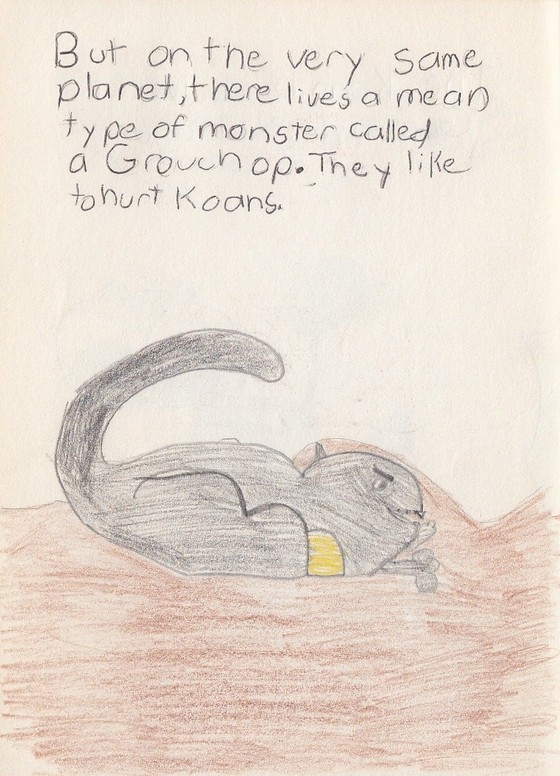 But on the very same
planet, there lives a mean
type of monster called
a Grouchop. They like
to hurt Koans.